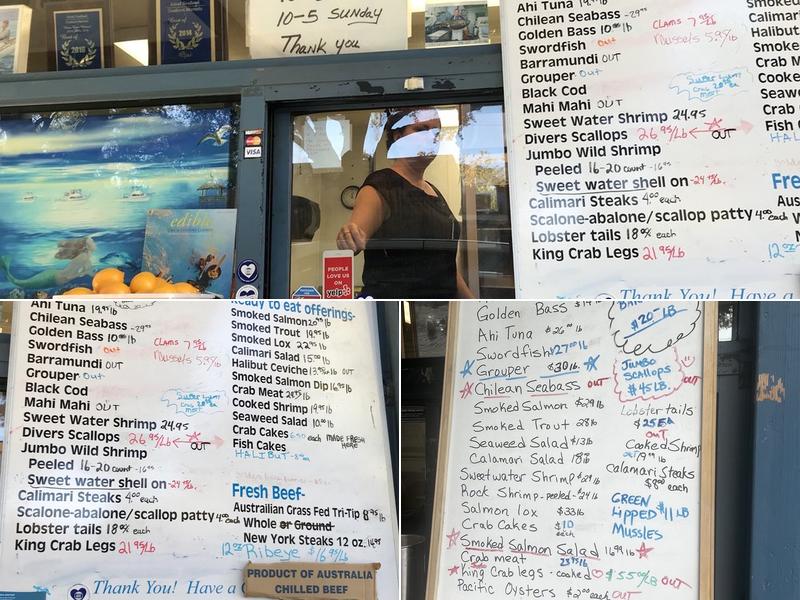 10-5 Sunday
Thank you
2018
2016
edible
VISA
PEOPLE
LOVE US
ON
yelp
Ahi Tuna 19.95 lb
Chilean Seabass -29.95
Golden Bass 10.00 lb
Swordfish out
Barramundi OUT
Grouper Out
Black Cod
Mahi Mahi OUT
Sweet Water Shrimp 24.95
Divers Scallops 26.95/Lb OUT
Jumbo Wild Shrimp
Peeled 16-20 count -16.95
Sweet water shell on
Calimari Steaks 4.00 each
Scalone-abalone/scallop patty 4.00 each
Lobster tails 18.00 each
King Crab Legs 21.95/Lb
Thank You! Have a
Smoked
Calimari
Halibut
Smoked
Crab M
Cooked
Seawe
Crab
Fish C
Fre
Aus
W
N
Ahi Tuna 19.95 lb
Chilean Seabass -29.95
Golden Bass 10.00 lb
Swordfish out
Barramundi OUT
Grouper Out
Black Cod
Mahi Mahi OUT
Sweet Water Shrimp 24.95
Divers Scallops 26.95/Lb OUT
Jumbo Wild Shrimp
Peeled 16-20 count -16.95
Sweet water shell on
Calimari Steaks 4.00 each
Scalone-abalone/scallop patty 4.00 each
Lobster tails 18.00 each
King Crab Legs 21.95/Lb
Ready to eat offerings-
Smoked Salmon
Smoked Trout 19.95 lb
Smoked Lox 22.95 lb
Calimari Salad 15.00 lb
Halibut Ceviche OUT
Smoked Salmon Dip 16.95 lb
Crab Meat
Cooked Shrimp 19.95 lb
Seaweed Salad
Crab Cakes each MADE FRESH
Fish Cakes HERE
HALIBUT
Fresh Beef-
Australian Grass Fed Tri-Tip 8.95 lb
Whole or Ground
New York Steaks 12 oz. 14.95
12 oz Ribeye $16.95/Lb
Thank You! Have a
PRODUCT OF AUSTRALIA
CHILLED BEEF
Golden Bass
Ahi Tuna $26.00 lb
Swordfish $27.00 lb
Grouper $30 lb.
Chilean Seabass OUT
Smoked Salmon $29 lb
Smoked Trout 28 lb
Seaweed Salad $13 lb
Calamari Salad
Sweetwater Shrimp
Rock Shrimp-peeled $24 lb
Salmon lox $33 lb
Crab Cakes $10 each
Smoked Salmon Salad
Crab meat
King Crab legs-cooked $55.00/LB OUT
Pacific Oysters $2.00 each OUT
$20-LB
JUMBO
SCALLOPS
$45 LB. OUT
Lobster tails
$25 EA
OUT
Cooked Shrimp
Calamari Steaks
$8.00 each
GREEN
Lipped $11 LB
Mussles